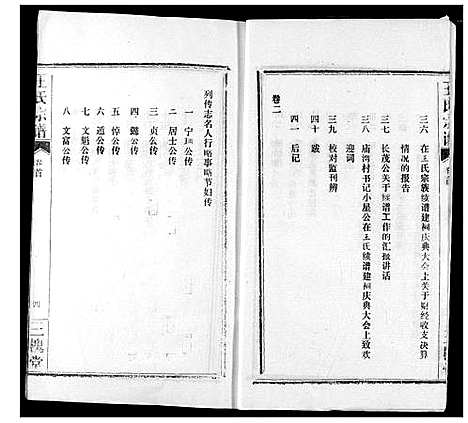 王氏宗谱
卷首
三六 在王氏宗族续谱建祠庆典大会上关于财经收支决算
情况的报告
三七 长茂公关于续谱工作的汇报讲话
三八 庙湾村书记小星公在王氏续谱建祠庆典大会上致欢
迎词
三九 校对监刊辨
四十 跋
四一 后记
卷二
列传志名人行略事略节妇传
一 宁 公传
二 居士公传
三 贞公传
四 懿公传
五 悼公传
六 通公传
七 文魁公传
八 文富公传
王氏宗谱
卷首
四
三槐堂